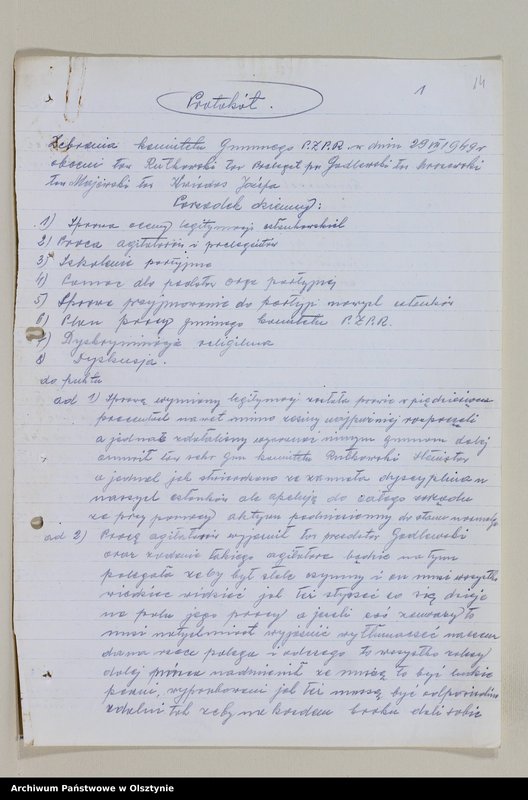 Protokół.
1
14
Zebrania komitetu Gminnego P.Z.P.R. w dniu 29 1949 r
obecni tow Rutkowski tow Godlewski tow
tow Majewski tow Józefa
Porządek dzienny:
1) Sprawa oceny legitymacji członkowskich
2) Praca agitatorów i prelegentów
3) Szkolenie partyjne
4) Pomoc dla podstw orga partyjnej
5) Sprawa przyjmowania do partyji nowych członków
6) Plan pracy gminego komitetu P.Z.P.R.
7) Dyskryminacja religijna
8 Dyskusja.
do punktu
ad 1) Sprawą wymiany legitymacji została prawie w
nawet mimo żeśmy najpóźniej rozpoczęli
a jednak zdołaliśmy innym gminom dalej
omówił tow sekr gm komitetu Rutkowski
a jednak jak stwierdzono że załamała dyscyplina u
naszych członków ale apeluję do całego zarządu
że przy pomocy aktywu podniesiemy do stanu
ad 2) Pracę agitatorów wyjaśnił tow Godlewski
oraz zadania takiego agitatora będzie na tym
polegała żeby był stale czynny i on musi wszystko
wiedzieć widzieć jak też słyszeć co się dzieje
na polu jego pracy a jeżeli coś zauważy to
musi natychmiast wyjaśnić wytłumaczyć
dana rzecz polega i od czego to wszystko zależy
dalej nadmienił że muszą to być ludzie
pewni, wyprobowani jak też muszą być odpowiednio
zdolni tak żeby na każdem kroku dali sobie
Archiwum Państwowe w Olsztynie